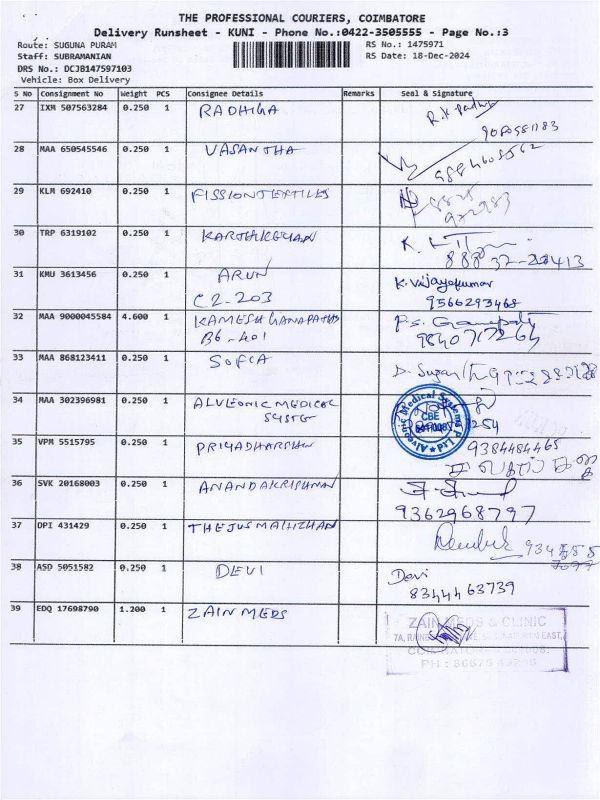 THE PROFESSIONAL COURIERS, COIMBATORE
Delivery Runsheet - KUNI - Phone No.:0422-3505555 - Page No.:3
Route: SUGUNA PURAM RS No.: 1475971
Staff: SUBRAMANIAN RS Date: 18-Dec-2024
DRS No.: DCJB147597103
Vehicle: Box Delivery
S No Consignment No Weight PCS Consignee Details Remarks Seal & Signature
27 IXM 507563284 0.250 1 RADHIGA
28 MAA 650545546 0.250 1 VASANTHA
29 KLM 692410 0.250 1 FISSIONTEXTILES
30 TRP 6319102 0.250 1 KARTHIKEYAN
31 KMU 3613456 0.250 1 ARUN K. Vijayakumar
C2-203 9566293468
32 MAA 9000045584 4.600 1 KAMESH GANAPATHY P.S. Ganapati
B6-401 9840717264
33 MAA 868123411 0.250 1 SOFIA
34 MAA 302396981 0.250 1 ALVEONIC MEDICAL
Alveonic Medical Systems P Ltd
CBE
35 VPM 5515795 0.250 1 PRIYADHARSHINI 9384484465
36 SVK 20168003 0.250 1 ANANDAKRISHNAN
9362968797
37 DPI 431429 0.250 1 THEJUS MAHIZHAN
38 ASD 5051582 0.250 1 DEVI Devi
8344463739
39 EDQ 17698790 1.200 1 ZAIN MEDS
ZAIN MEDS & CLINIC